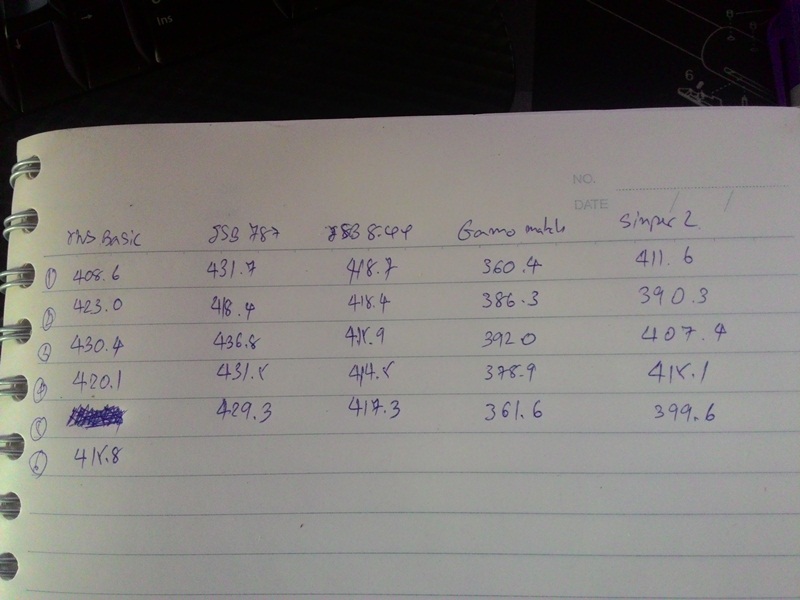 Ins
6
NO.
DATE
RWS Basic JSB 787 JSB 8.44 Gamo match Sinper 2
① 408.6 431.7 418.7 360.4 411.6
② 423.0 418.4 418.4 386.3 390.3
③ 430.4 436.8 415.9 392.0 407.4
④ 420.1 431.5 414.5 378.9 415.1
⑤ 429.3 417.3 361.6 399.6
⑥ 415.8